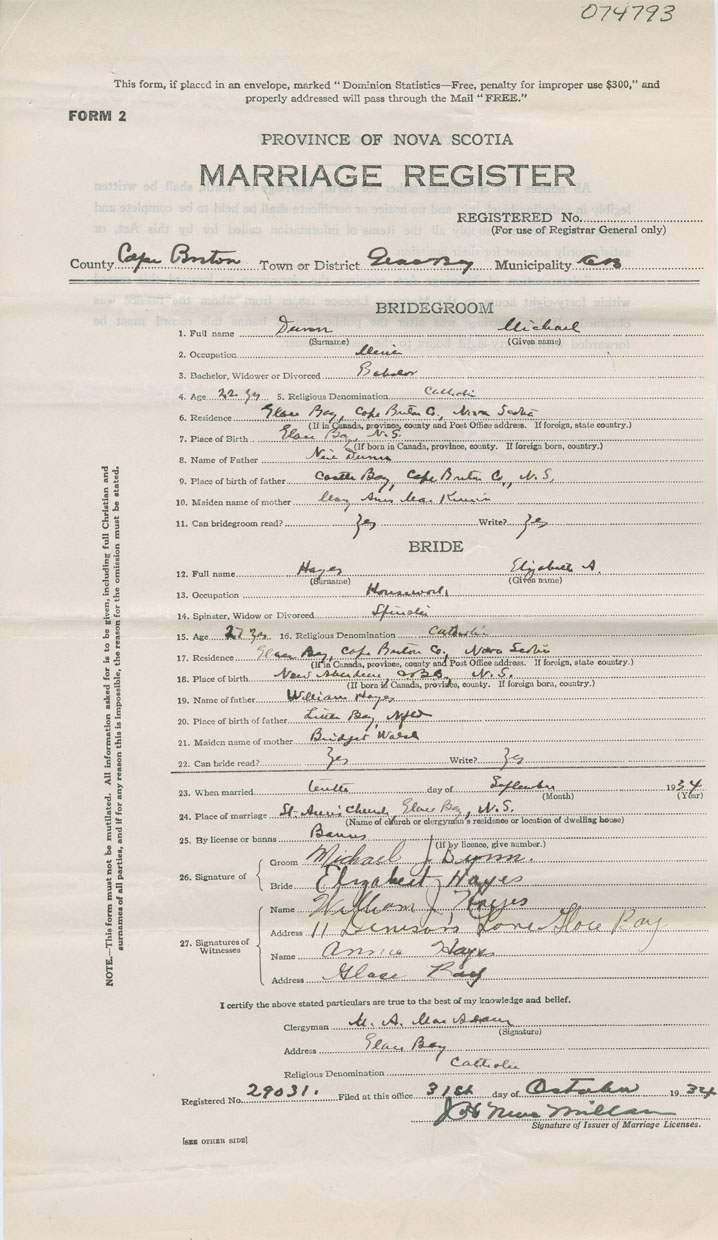 074793
This form, if placed in an envelope, marked "Dominion Statistics—Free, penalty for improper use $300," and
properly addressed will pass through the Mail "FREE."
FORM 2
PROVINCE OF NOVA SCOTIA
MARRIAGE REGISTER
REGISTERED No.
(For use of Registrar General only)
County Cape Breton Town or District Glace Bay Municipality CB
BRIDEGROOM
1. Full name Dunn Michael
(Surname) (Given name)
2. Occupation Miner
3. Bachelor, Widower or Divorced Bachelor
4. Age 22 yrs 5. Religious Denomination Catholic
6. Residence Glace Bay, Cape Breton Co., Nova Scotia
(If in Canada, province, county and Post Office address. If foreign, state country.)
7. Place of Birth Glace Bay, N.S.
(If born in Canada, province, county. If foreign born, country.)
8. Name of Father Neil Dunn
9. Place of birth of father Castle Bay, Cape Breton Co., N.S.
10. Maiden name of mother Mary Ann Mac Kinnon
11. Can bridegroom read? Yes Write? Yes
BRIDE
12. Full name Hayes Elizabeth A.
(Surname) (Given name)
13. Occupation Housework
14. Spinster, Widow or Divorced Spinster
15. Age 27 yrs 16. Religious Denomination Catholic
17. Residence Glace Bay, Cape Breton Co., Nova Scotia
(If in Canada, province, county and Post Office address. If foreign, state country.)
18. Place of birth New Aberdeen, N.S.
(If born in Canada, province, county. If foreign born, country.)
19. Name of father William Hayes
20. Place of birth of father Little Bay, Nfld
21. Maiden name of mother Bridget Walsh
22. Can bride read? Yes Write? Yes
23. When married tenth day of September 1934
(Month) (Year)
24. Place of marriage St. Ann's Church, Glace Bay, N.S.
(Name of church or clergyman's residence or location of dwelling house)
25. By license or banns Banns
(If by licence, give number.)
26. Signature of
Groom Michael J Dunn.
Bride Elizabeth Hayes
27. Signatures of Witnesses
Name William J. Hayes
Address 11 Glace Bay
Name Annie Hayes
Address Glace Bay
I certify the above stated particulars are true to the best of my knowledge and belief.
Clergyman M. A. Mac Adam
(Signature)
Address Glace Bay
Religious Denomination Catholic
Registered No. 29031. Filed at this office 31st day of October 1934
Mac Millan
Signature of Issuer of Marriage Licenses.
[SEE OTHER SIDE]
NOTE.—This form must not be mutilated. All information asked for is to be given, including full Christian and
surnames of all parties, and if for any reason this is impossible, the reason for the omission must be stated.